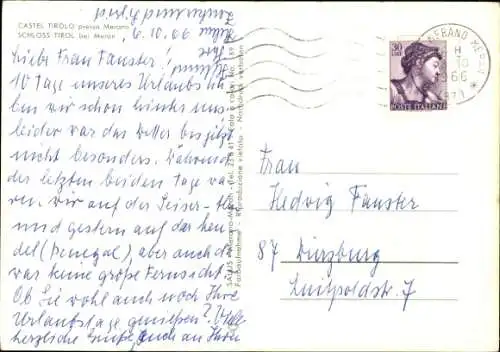 CASTEL TIROLO presso Merano
SCHLOSS TIROL bei Meran
6.10.66
Liebe Frau Fauster!
10 Tage unseres Urlaubs ha-
ben wir schon hinter uns
leider war das Wetter bis jetzt
nicht besonders. Während
der letzten beiden Tage wa-
ren wir auf der Seiser-
und gestern auf das
del (Penegal), aber auch da
war keine große Fernsicht.
Ob Sie wohl auch noch Ihre
Urlaubstage genießen?
herzliche Grüße, auch an Ihren
Fotoaufnahme - Riproduzione vietata - Nachdruck verboten
MERANO MERAN
30
LIRE
POSTE ITALIANE
Frau
Hedwig Fauster
87 Würzburg
Luitpoldstr. 7